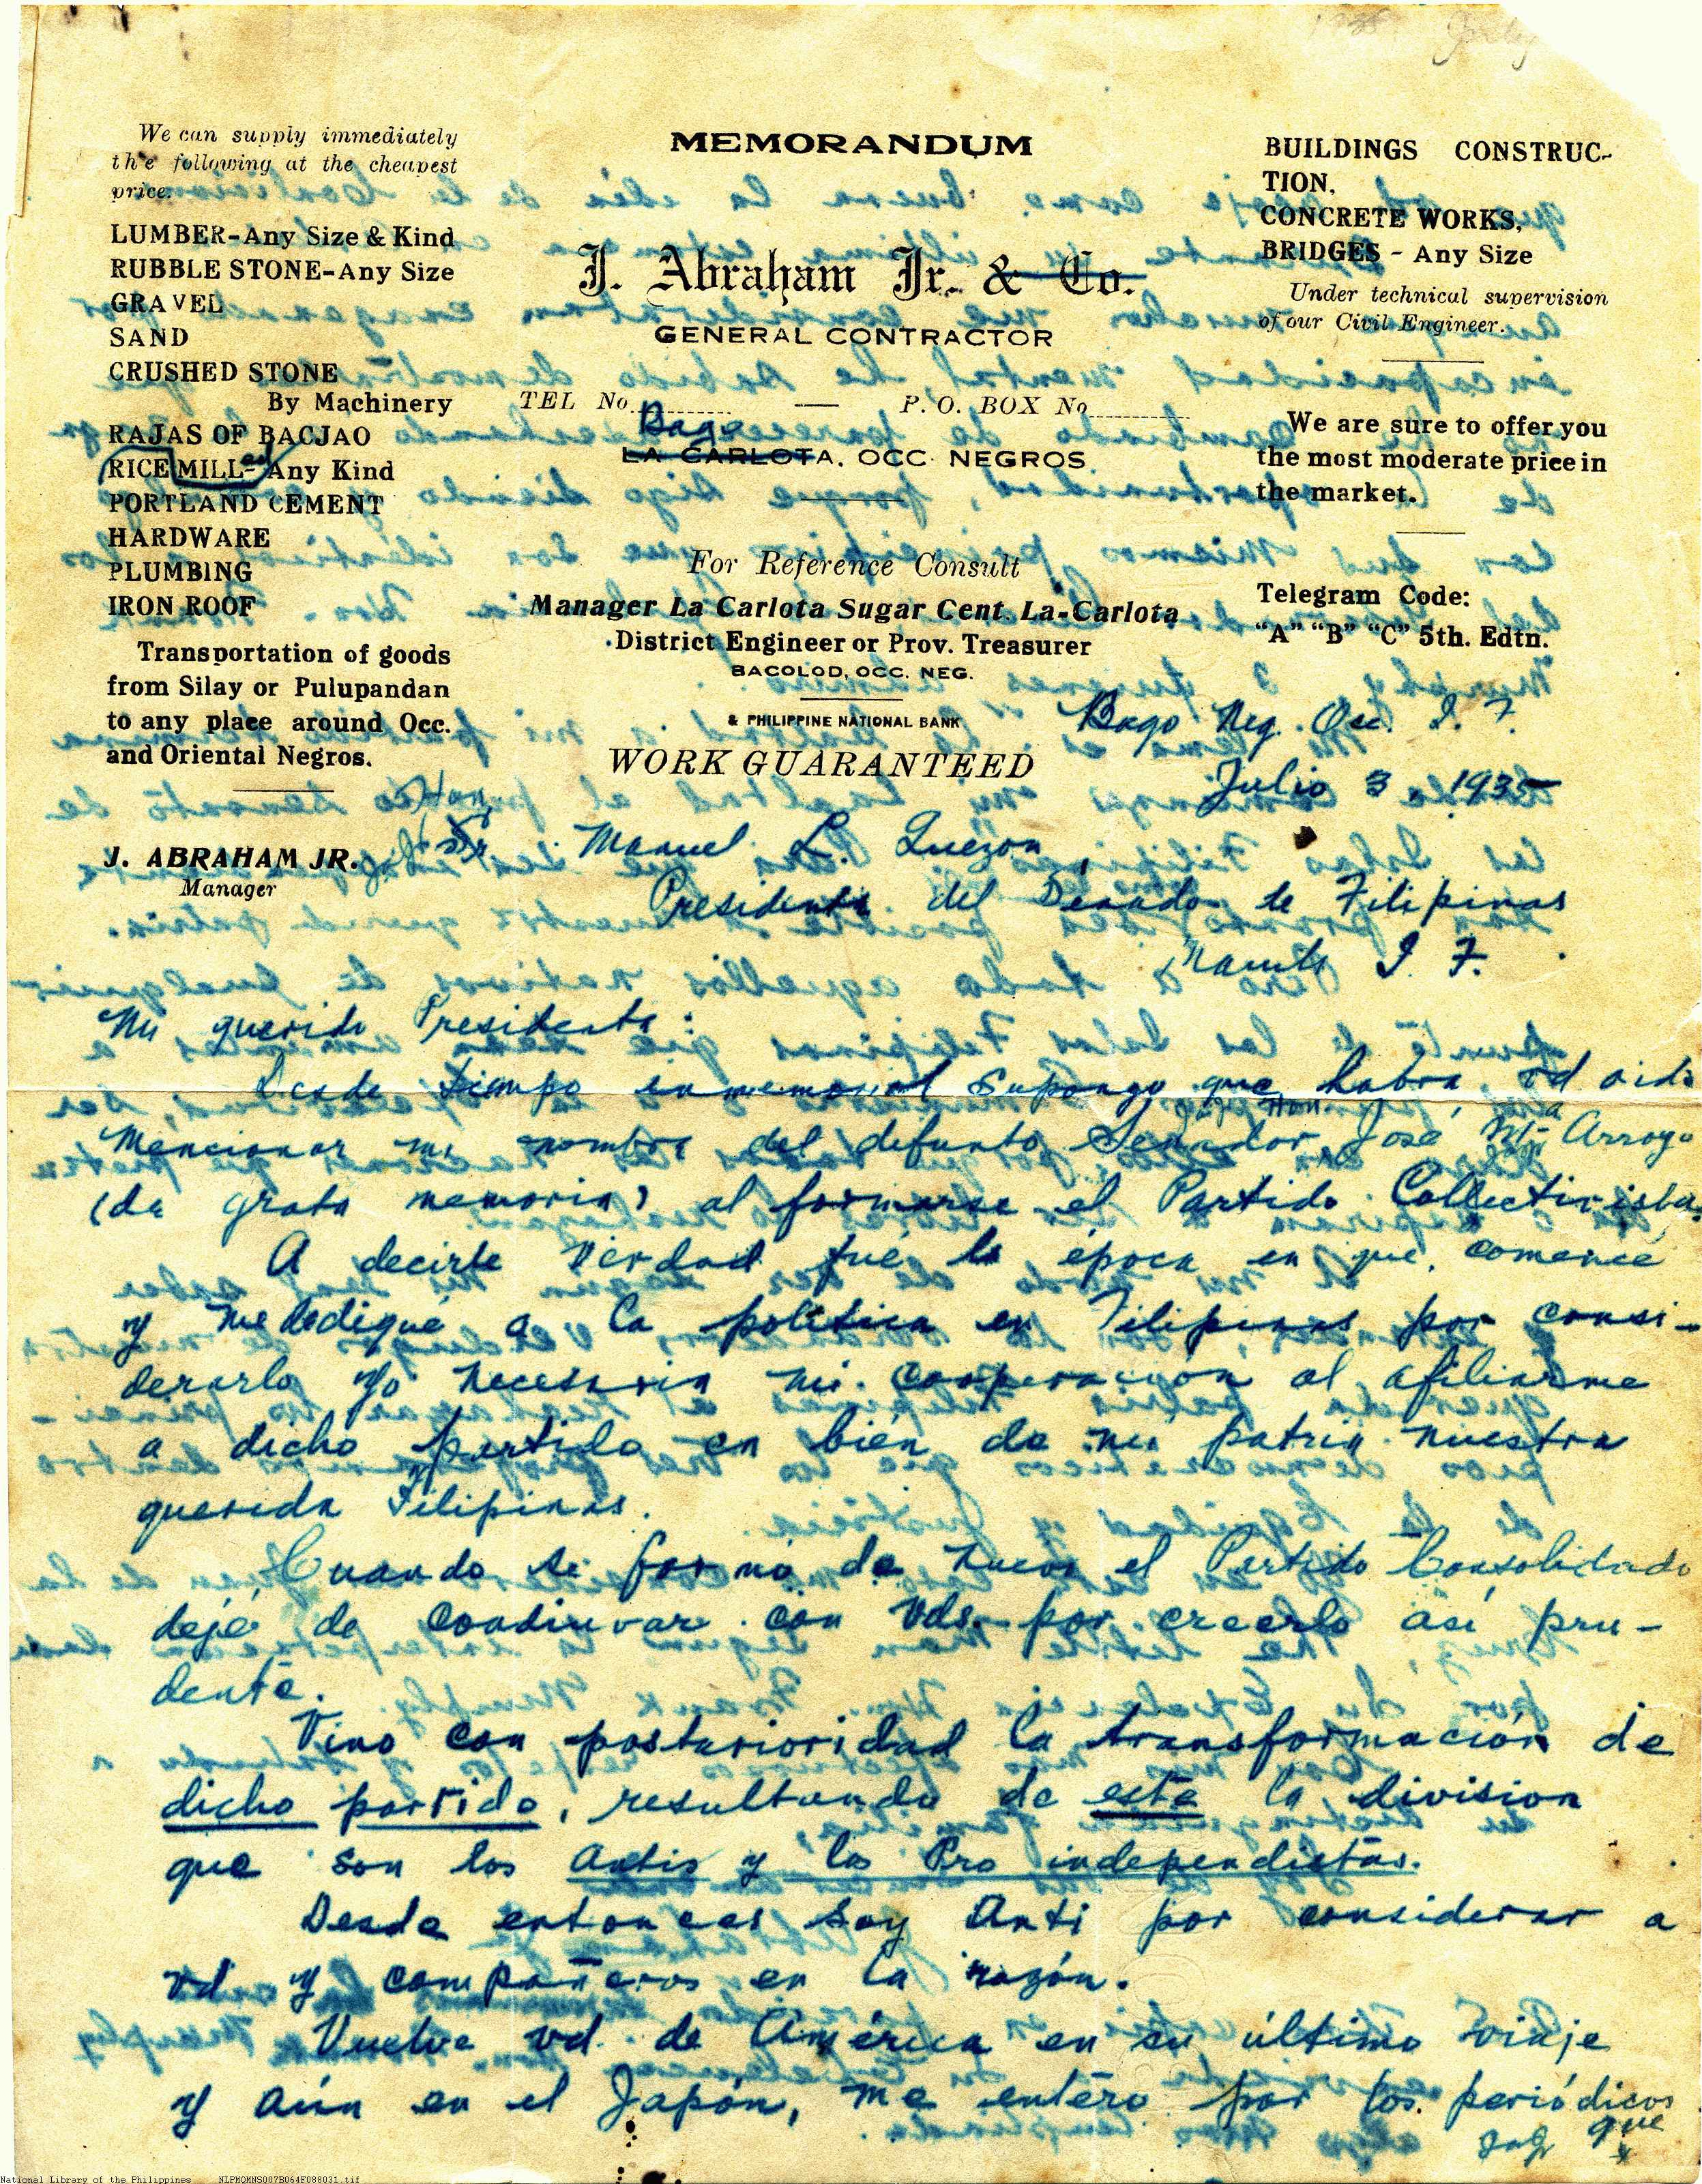 We can supply immediately
the following at the cheapest
price:
LUMBER-Any Size & Kind
RUBBLE STONE-Any Size
GRAVEL
SAND
CRUSHED STONE
By Machinery
RAJAS OF BACJAO
RICE MILL- Any Kind
PORTLAND CEMENT
HARDWARE
PLUMBING
IRON ROOF
Transportation of goods
from Silay or Pulupandan
to any place around Occ.
and Oriental Negros.
J. ABRAHAM JR.
Manager
MEMORANDUM
J. Abraham Jr. & Co.
GENERAL CONTRACTOR
TEL No. — P. O. BOX No
Bago
LA CARLOTA, OCC. NEGROS
For Reference Consult
Manager La Carlota Sugar Cent. La-Carlota
District Engineer or Prov. Treasurer
BACOLOD, OCC. NEG.
& PHILIPPINE NATIONAL BANK
WORK GUARANTEED
BUILDINGS CONSTRUC-
TION,
CONCRETE WORKS,
BRIDGES - Any Size
Under technical supervision
of our Civil Engineer.
We are sure to offer you
the most moderate price in
the market.
Telegram Code:
"A" "B" "C" 5th. Edtn.
Bago Neg. Occ. I. F.
Julio 3, 1935
Hon.
Sr. Manuel L. Quezon,
Presidente del Senado de Filipinas
Manila I. F.
Mi querido Presidente:
Desde tiempo inmemorial supongo que habrá vd oido
Hon.
mencionar mi nombre del difunto Senador José Mª Arroyo
(de grata memoria) al formarse el Partido Collectivista.
A decirle verdad fué la época en que comencé
y me dediqué a la politica en Filipinas por consi-
derarlo yo necesaria mi cooperación al afiliarme
a dicho partido en bién de mi patria nuestra
querida Filipinas.
Cuando se formó de nuevo el Partido Consolidado
dejé de coadiuvar con Vds. por creerlo así pru-
dente.
Vino con posterioridad la transformación de
dicho partido, resultando de este la division
que son los Antis y los Pro independistas.
Desde entonces soy Anti por considerar a
vd y compañeros en la razón.
Vuelve vd. de América en su último viaje
y aún en el Japón, me entéro por los periódicos
que